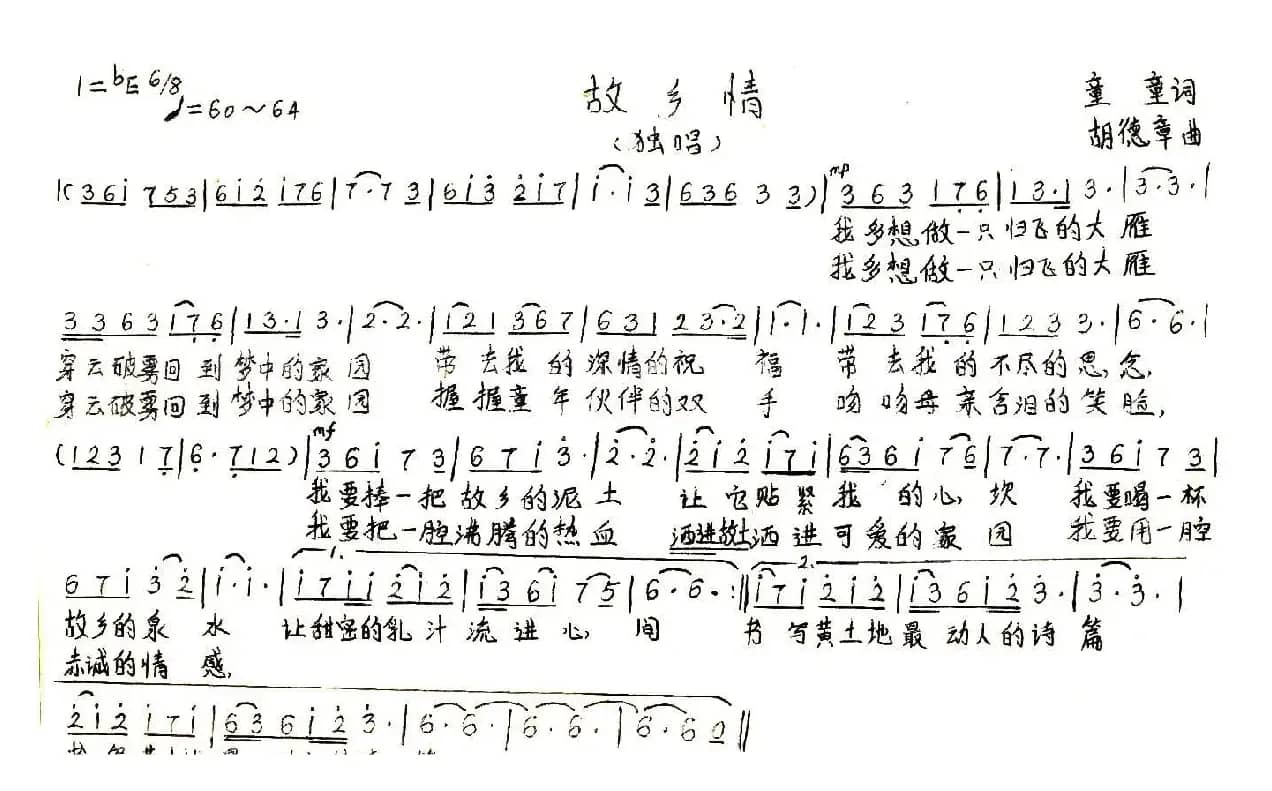 1=bE 6/8
♩=60～64
故乡情
（独唱）
童童词
胡德章曲
|(3 6 i 7 5 3|6 i 2 i 7 6|7·7 3|6 i 3 2 i 7|i·i 3|6 3 6 3 3)|mp 3 6 3 1 7 6|1 3·1 3·|3·3·|
我多想做一只归飞的大雁
我多想做一只归飞的大雁
3 3 6 3 1 7 6|1 3·1 3·|2·2·|1 2 1 3 6 7|6 3 1 2 3·2|1·1·|1 2 3 1 7 6|1 2 3 3·|6·6·|
穿云破雾回到梦中的家园 带去我的深情的祝福 带去我的不尽的思念,
穿云破雾回到梦中的家园 握握童年伙伴的双手 吻吻母亲含泪的笑脸,
(1 2 3 1 7|6·7 1 2)|mf 3 6 i 7 3|6 7 i 3·|2·2·|2 i 2 i 7 i|6 3 6 i 7 6|7·7·|3 6 i 7 3|
我要捧一把故乡的泥土 让它贴紧我的心坎 我要喝一杯
我要把一腔沸腾的热血 洒进故土洒进可爱的家园 我要用一腔
1. 2.
6 7 i 3 2|i·i·|i 7 i i 2 i 2|i 3 6 i 7 5|6·6·:||i 7 i 2 i 2|i 3 6 i 2 3·|3·3·|
故乡的泉水 让甜蜜的乳汁流进心间 书写黄土地最动人的诗篇
赤诚的情感,
2 i 2 i 7 i|6 3 6 i 2 3·|6·6·|6·6·|6·6 0||